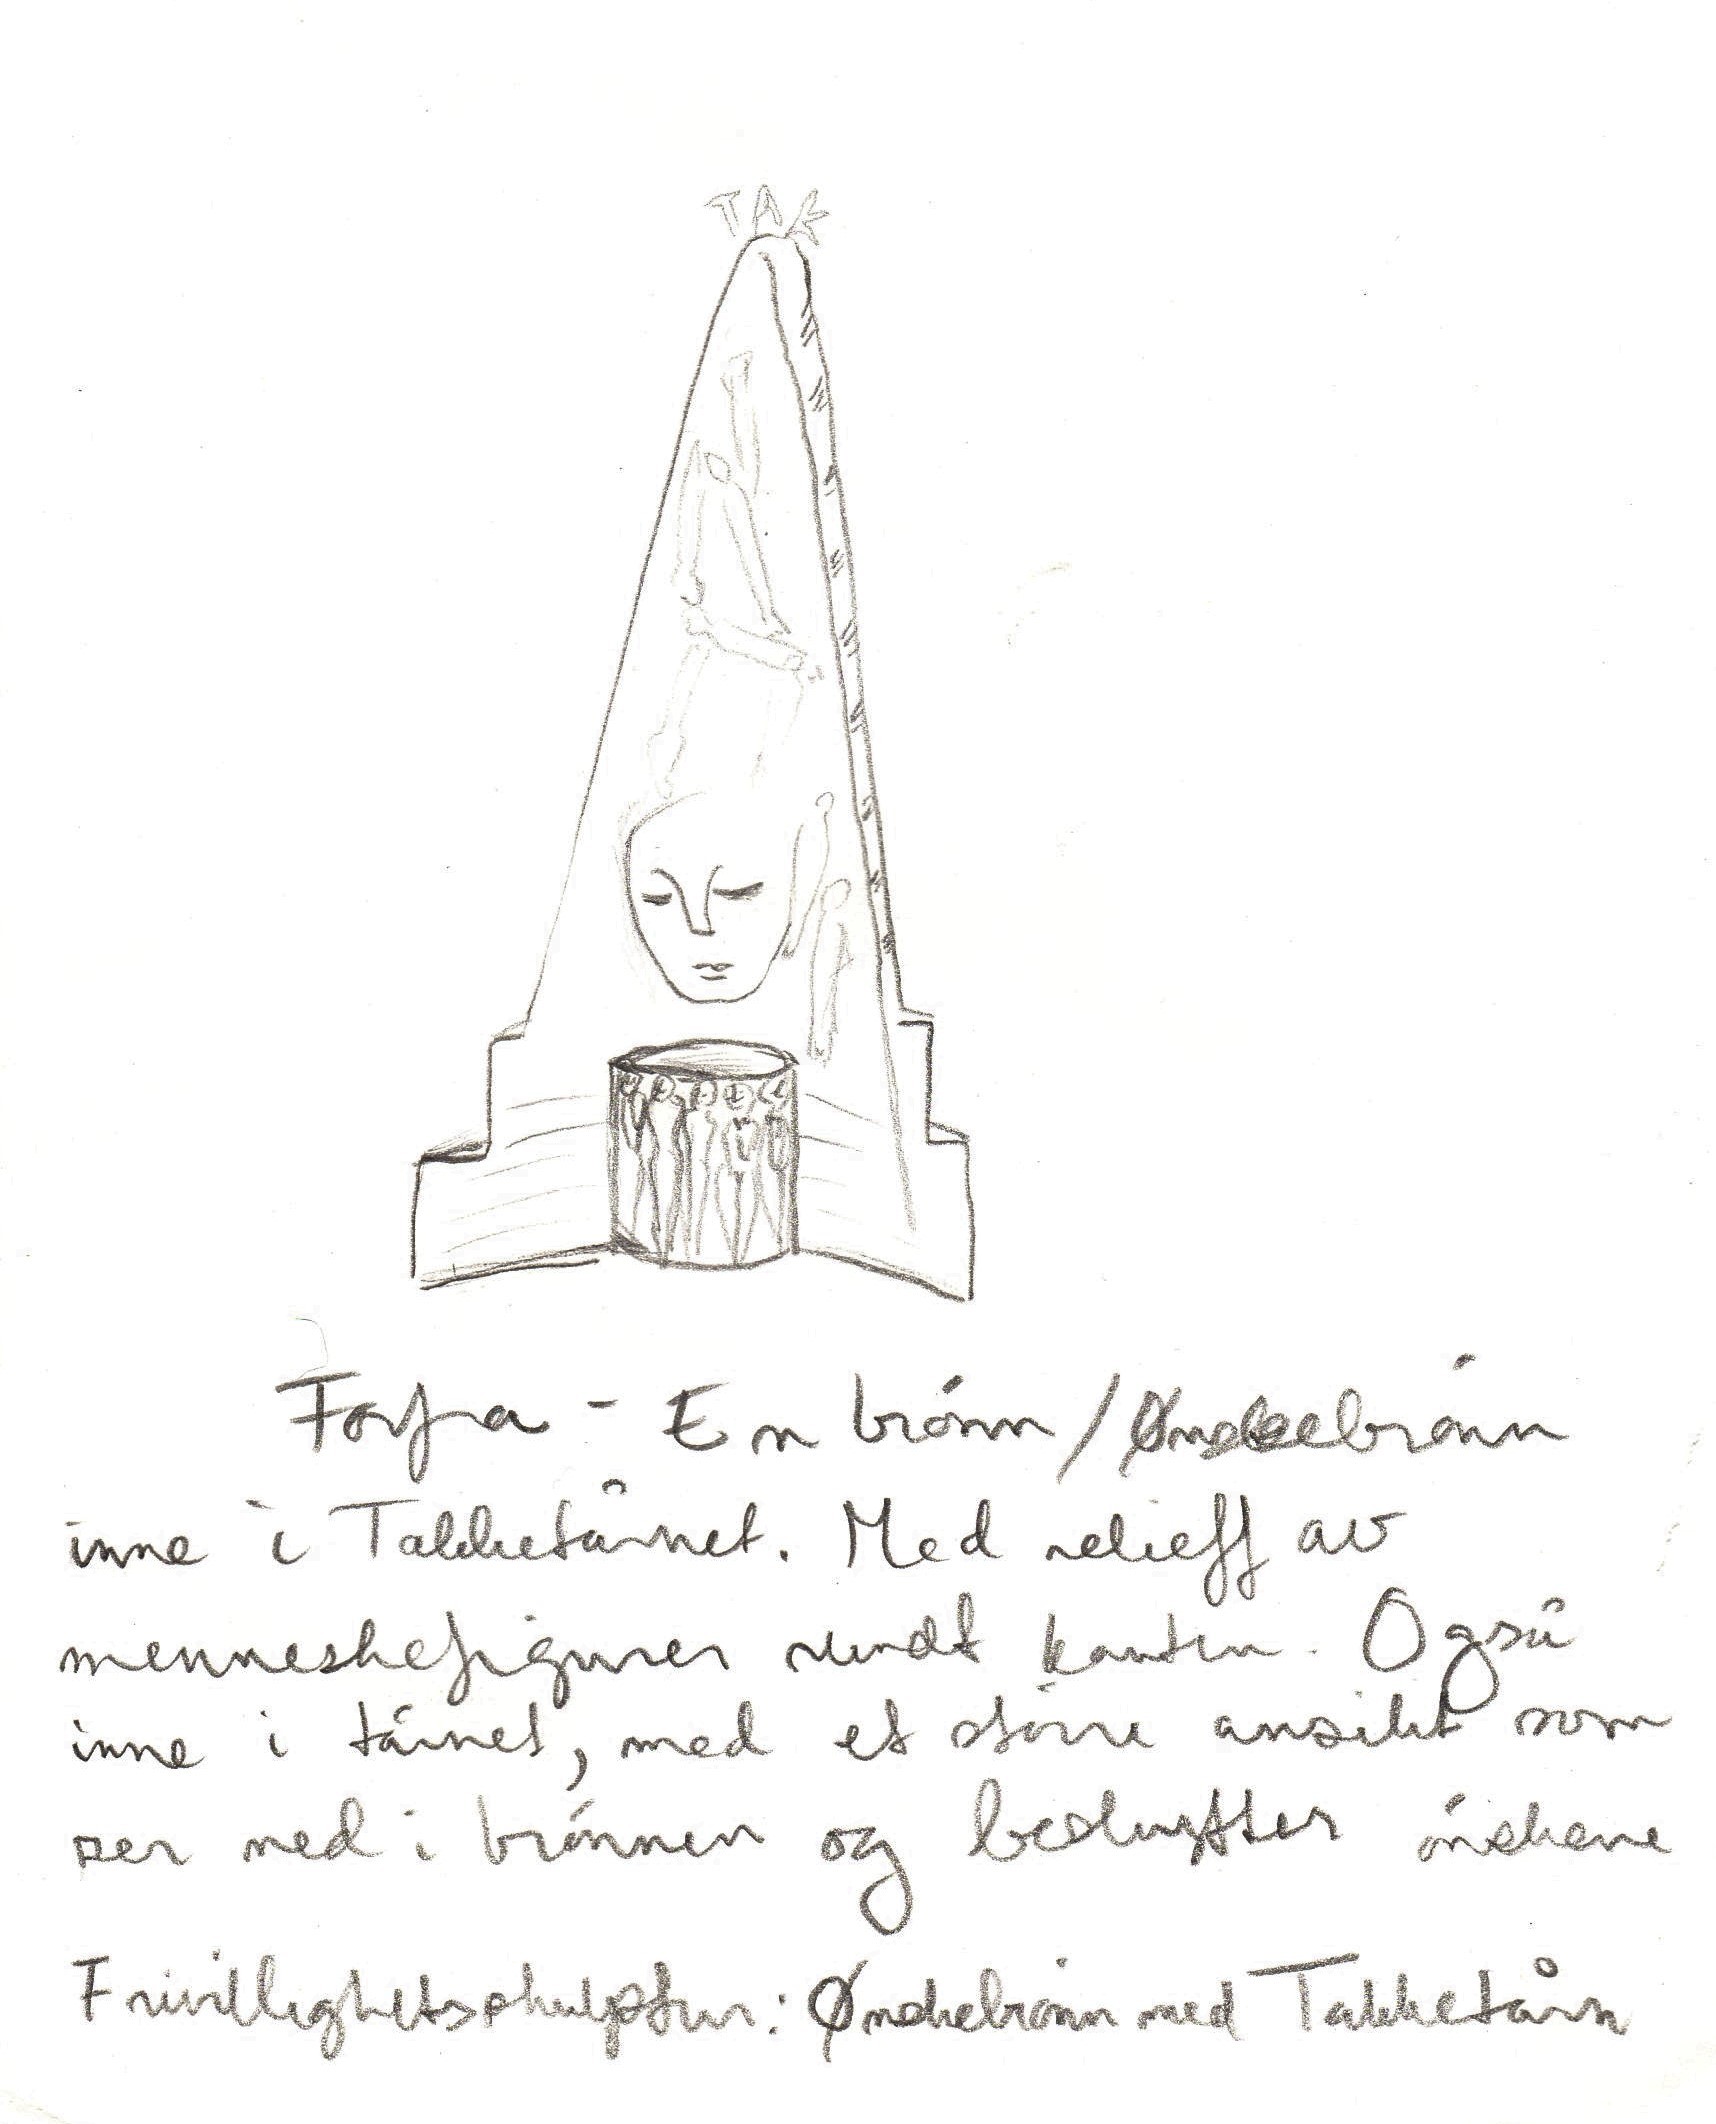 TAK
Forfra - En brønn / Ønskebrønn
inne i Takketårnet. Med relieff av
menneskefigurer rundt kanten. Også
inne i tårnet, med et større ansikt som
ser ned i brønnen og beskytter ønskene
Frivillighetsskulptur: Ønskebrønn med Takketårn